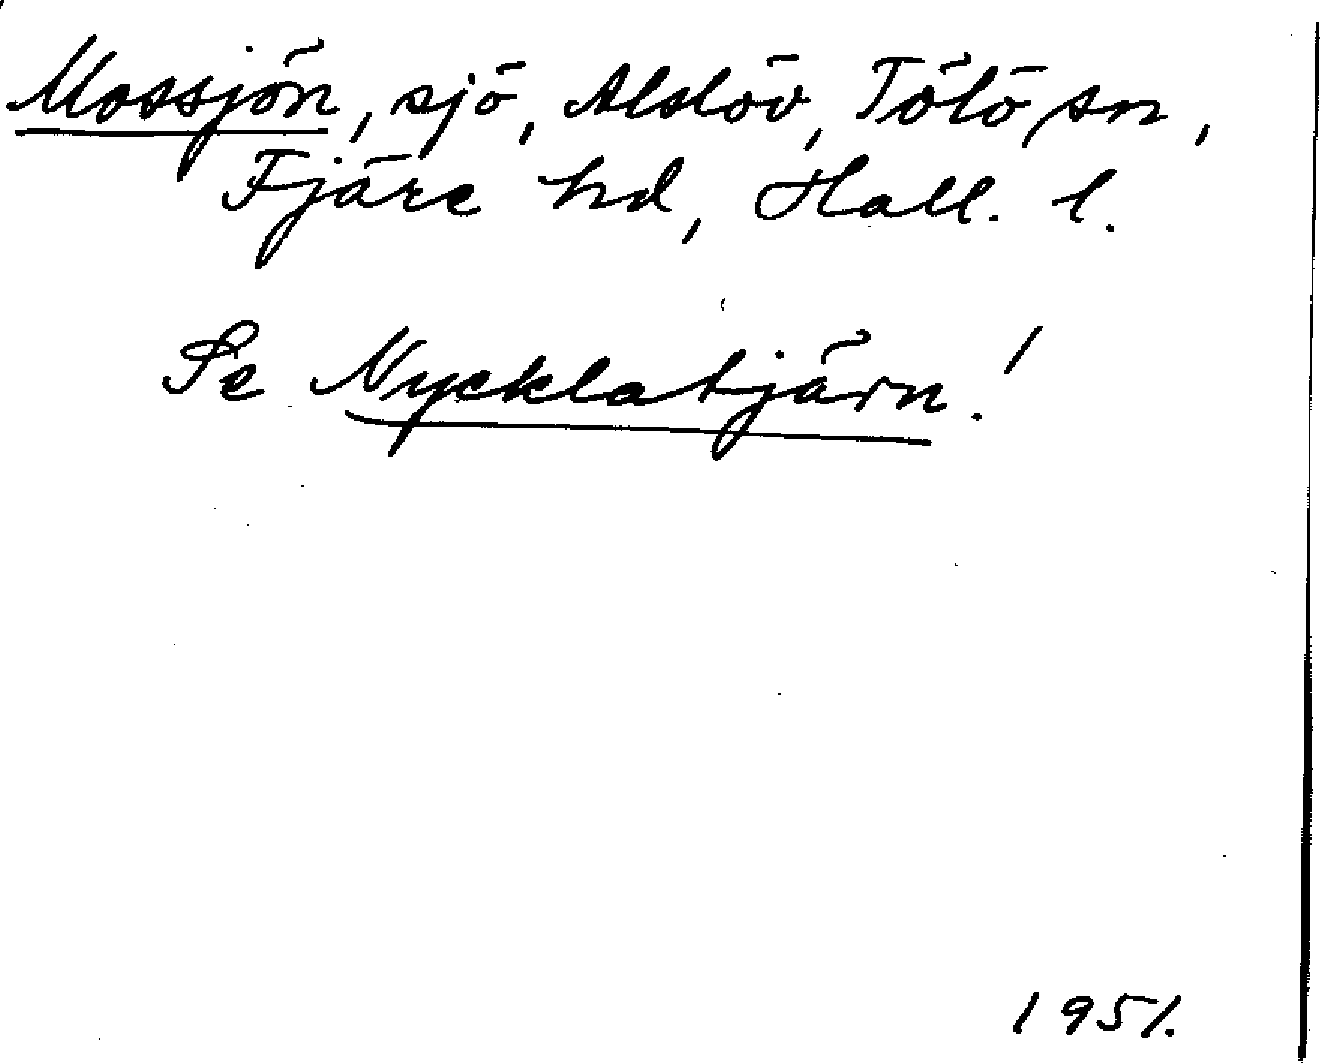 Mossjön, sjö, Alslöv, Tölö sn,
Fjäre hd, Hall. l.
Se Nycklatjärn!
1951.